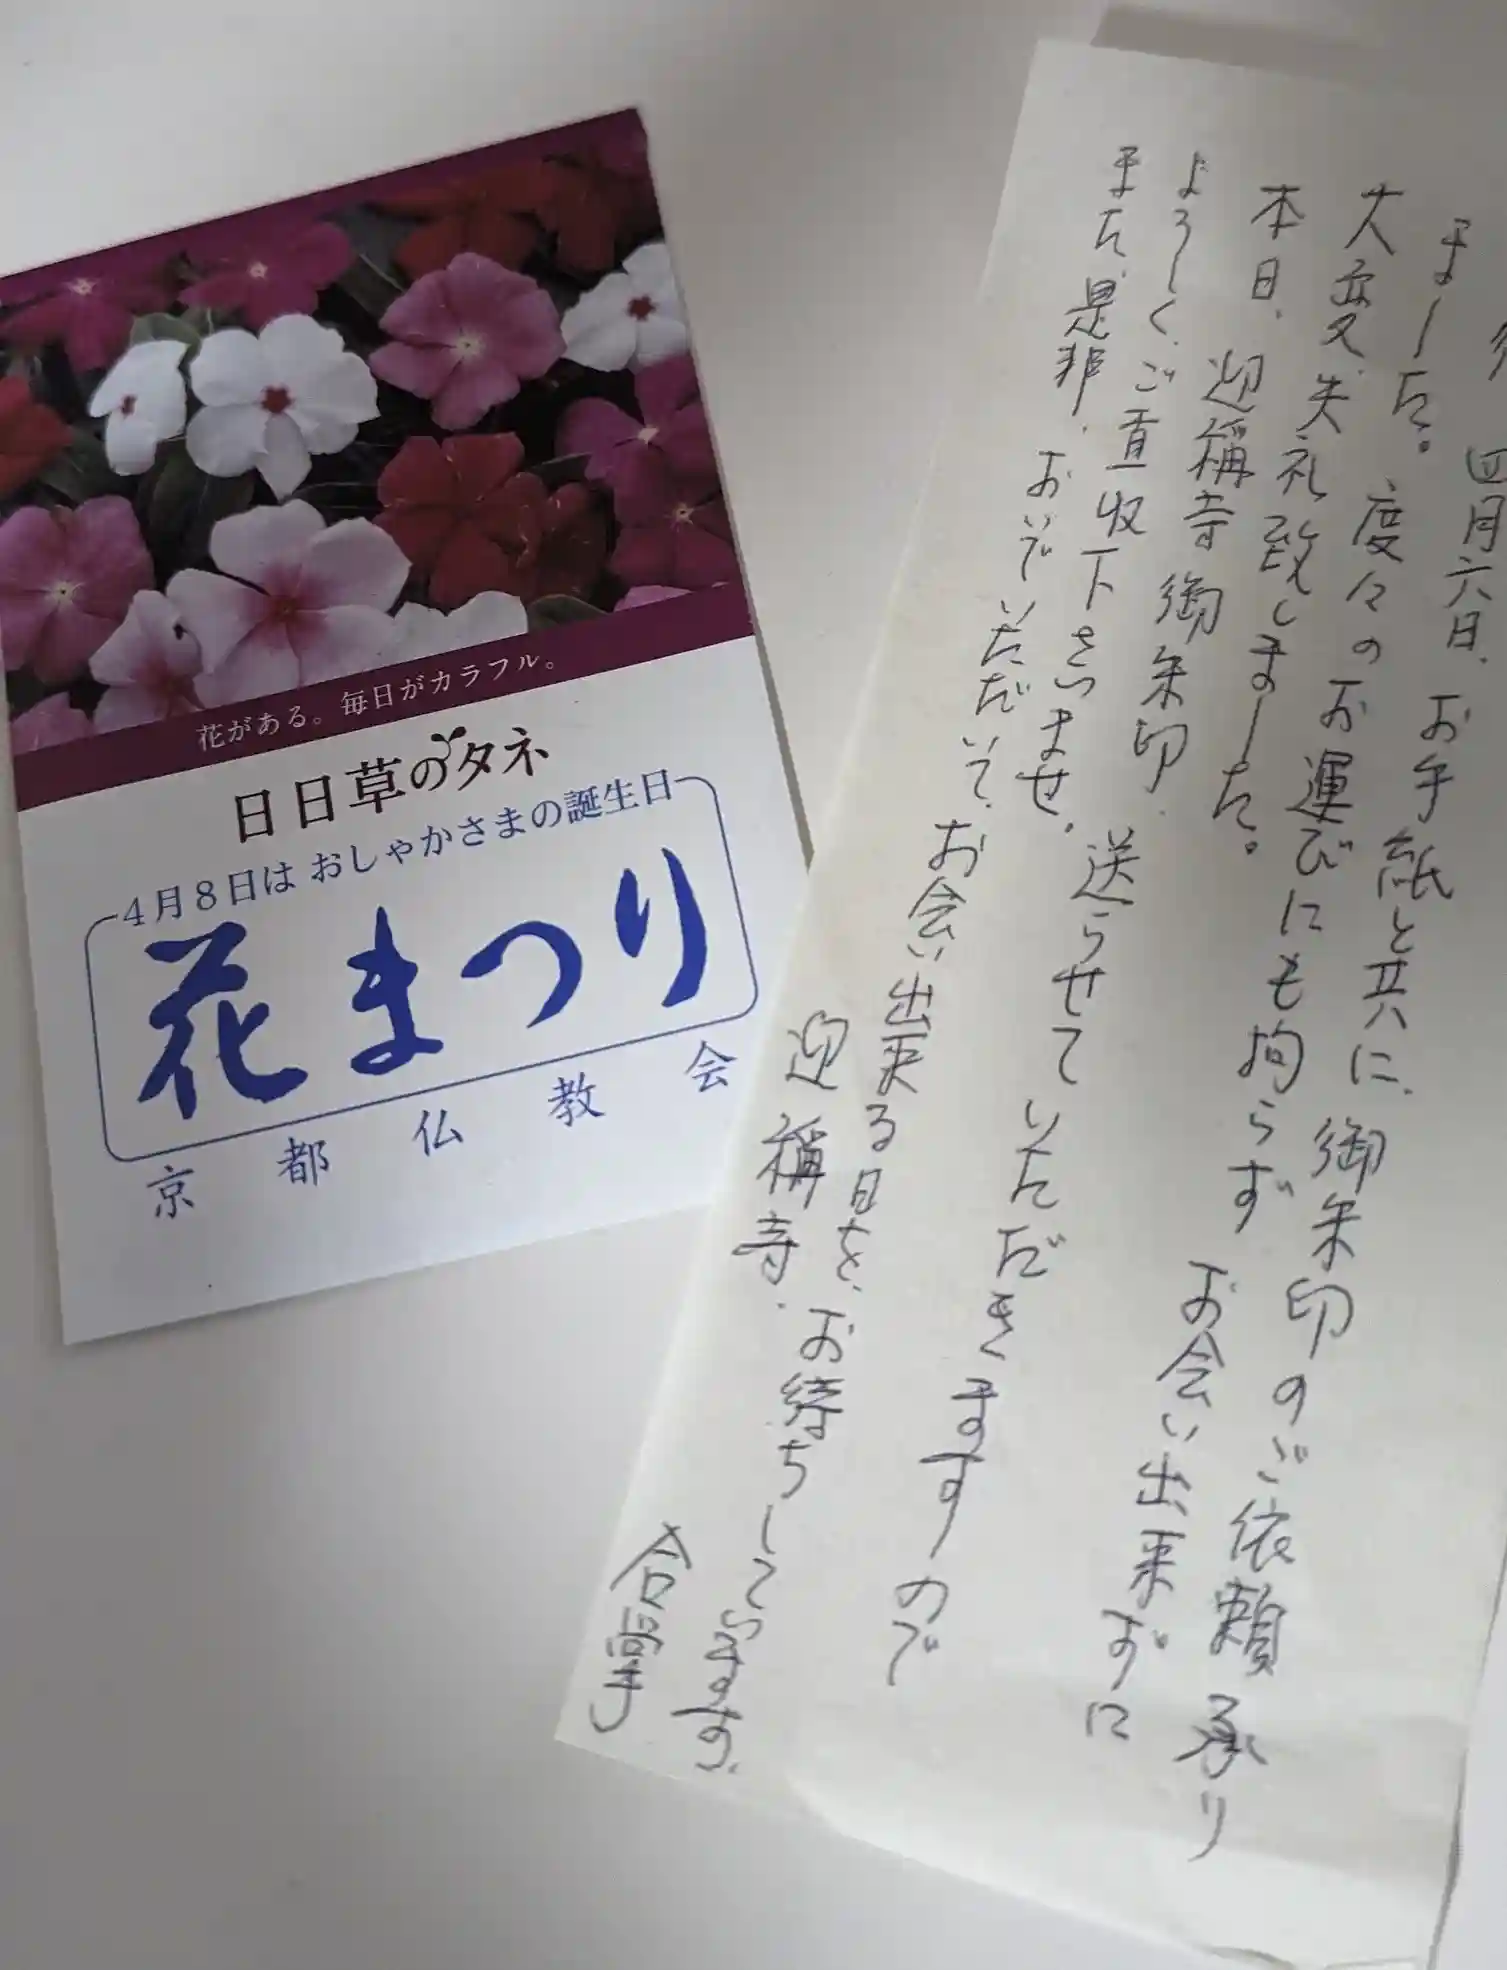 花がある。毎日がカラフル。
日日草のタネ
4月8日は おしゃかさまの誕生日
花まつり
京都仏教会
四月六日、お手紙と共に、御朱印のご依頼承り
ました。度々のお運びにも拘らず お会い出来ずに
大変失礼致しました。
本日、迎稱寺御朱印、送らせていただきますので
よろしく、ご査収下さいませ。
また、是非、おいでいただいて、お会い出来る日を、お待ちしています、
迎稱寺、
合掌